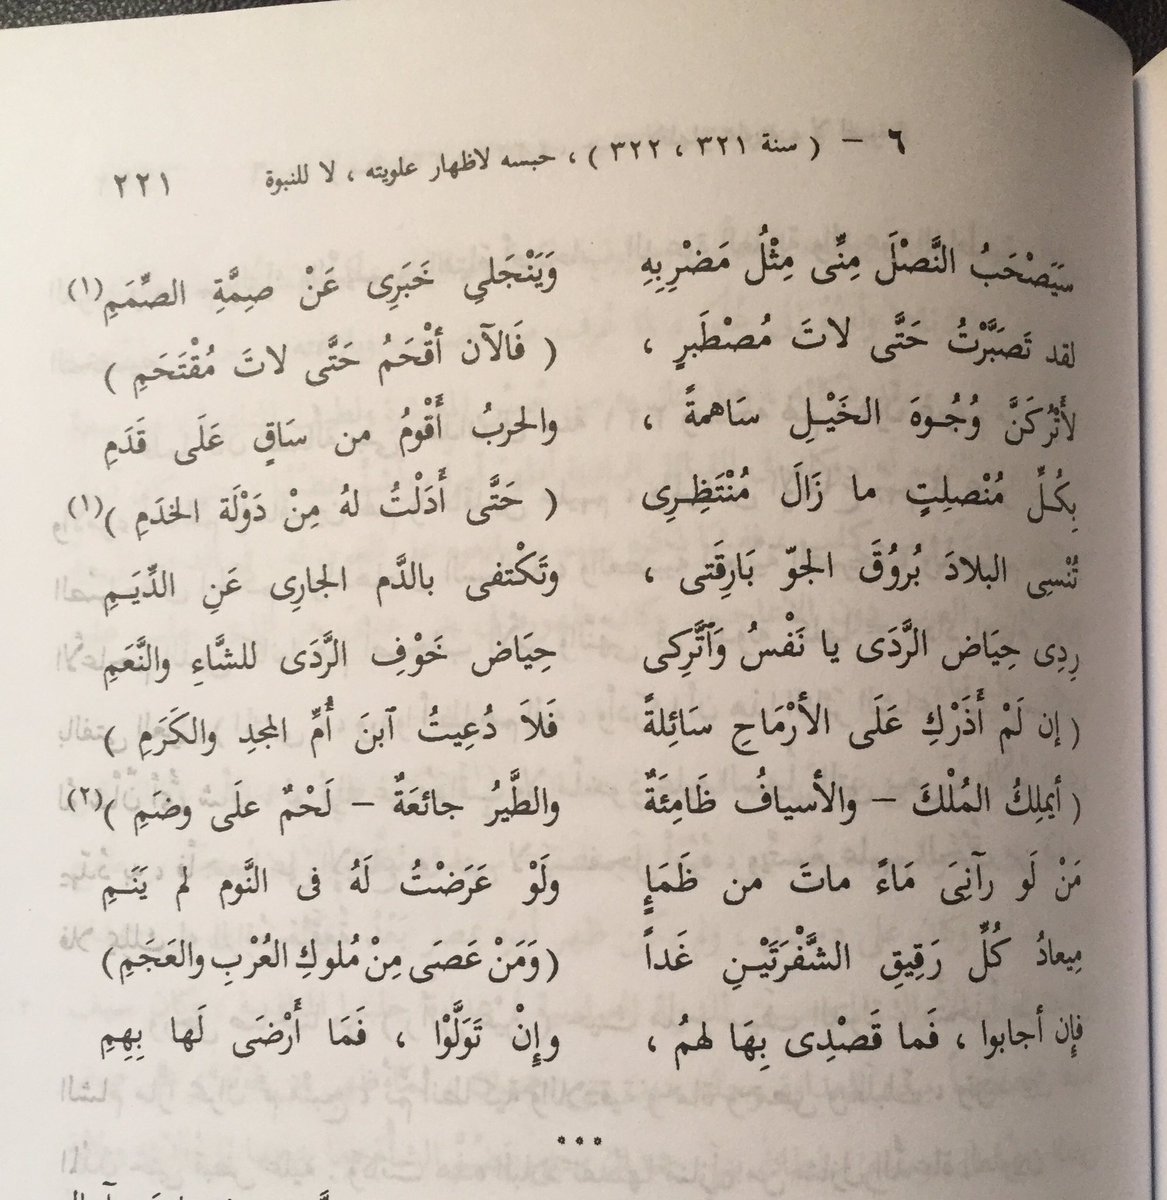 ٦ – ( سنة ٣٢١ ، ٣٢٢ ) ، حبسه لاظهار علويته ، لا للنبوة ٢٢١
سَيَصْحَبُ النَّصْلَ مِنِّى مِثْلُ مَضْرِبِهِ وَيَنْجَلِي خَبَرِى عَنْ صِمَّةِ الصِّمَمِ (١)
لقد تَصَبَّرْتُ حَتَّى لاتَ مُصْطَبرٍ ، ( فَالآن أقْحَمُ حَتَّى لاتَ مُقْتَحَمِ )
لأَتْرُكَنَّ وُجُوهَ الخَيْلِ سَاهمةً ، والحربُ أَقْومُ من سَاقٍ عَلَى قَدَمِ
بِكُلِّ مُنْصلِتٍ ما زَالَ مُنْتَظِرِى ( حَتَّى أَدَلْتُ لهُ مِنْ دَوْلَة الخدَمِ )(١)
تُنْسِى البلادَ بُروُقَ الجوّ بَارِقَتى ، وتَكْتفى بالدَّم الجارِى عَنِ الدِّيَمِ
رِدِى حِيَاضَ الرَّدَى يا نَفْسُ وَٱتَّرِكى حِيَاضَ خَوْفِ الرَّدَى للشَّاءِ والنَّعَمِ
( إن لَمْ أَذَرْكِ عَلَى الأرْمَاحِ سَائِلةً فَلاَ دُعِيتُ ٱبنَ أُمِّ المجدِ والكَرَمِ )
( أيملِكُ المُلْكَ – والأسيافُ ظَامِئَةٌ والطَّيرُ جائعَةٌ – لَحْمٌ علَى وضَمِ )(٢)
مَنْ لَو رآنِىَ مَاءً ماتَ من ظَمَإٍ ولَوْ عَرَضْتُ لَهُ فى النَّوم لم يَنَمِ
مِيعادُ كُلِّ رَقِيقِ الشَّفْرَتَيْنِ غَداً (وَمَنْ عَصَى مِنْ مُلوكِ العُرْبِ والعَجَمِ)
فإِن أجابوا ، فَما قَصْدِى بِهَا لهمُ ، وإِنْ تَوَلَّوْا ، فَمَا أَرْضَى لَها بِهِمِ
* * *